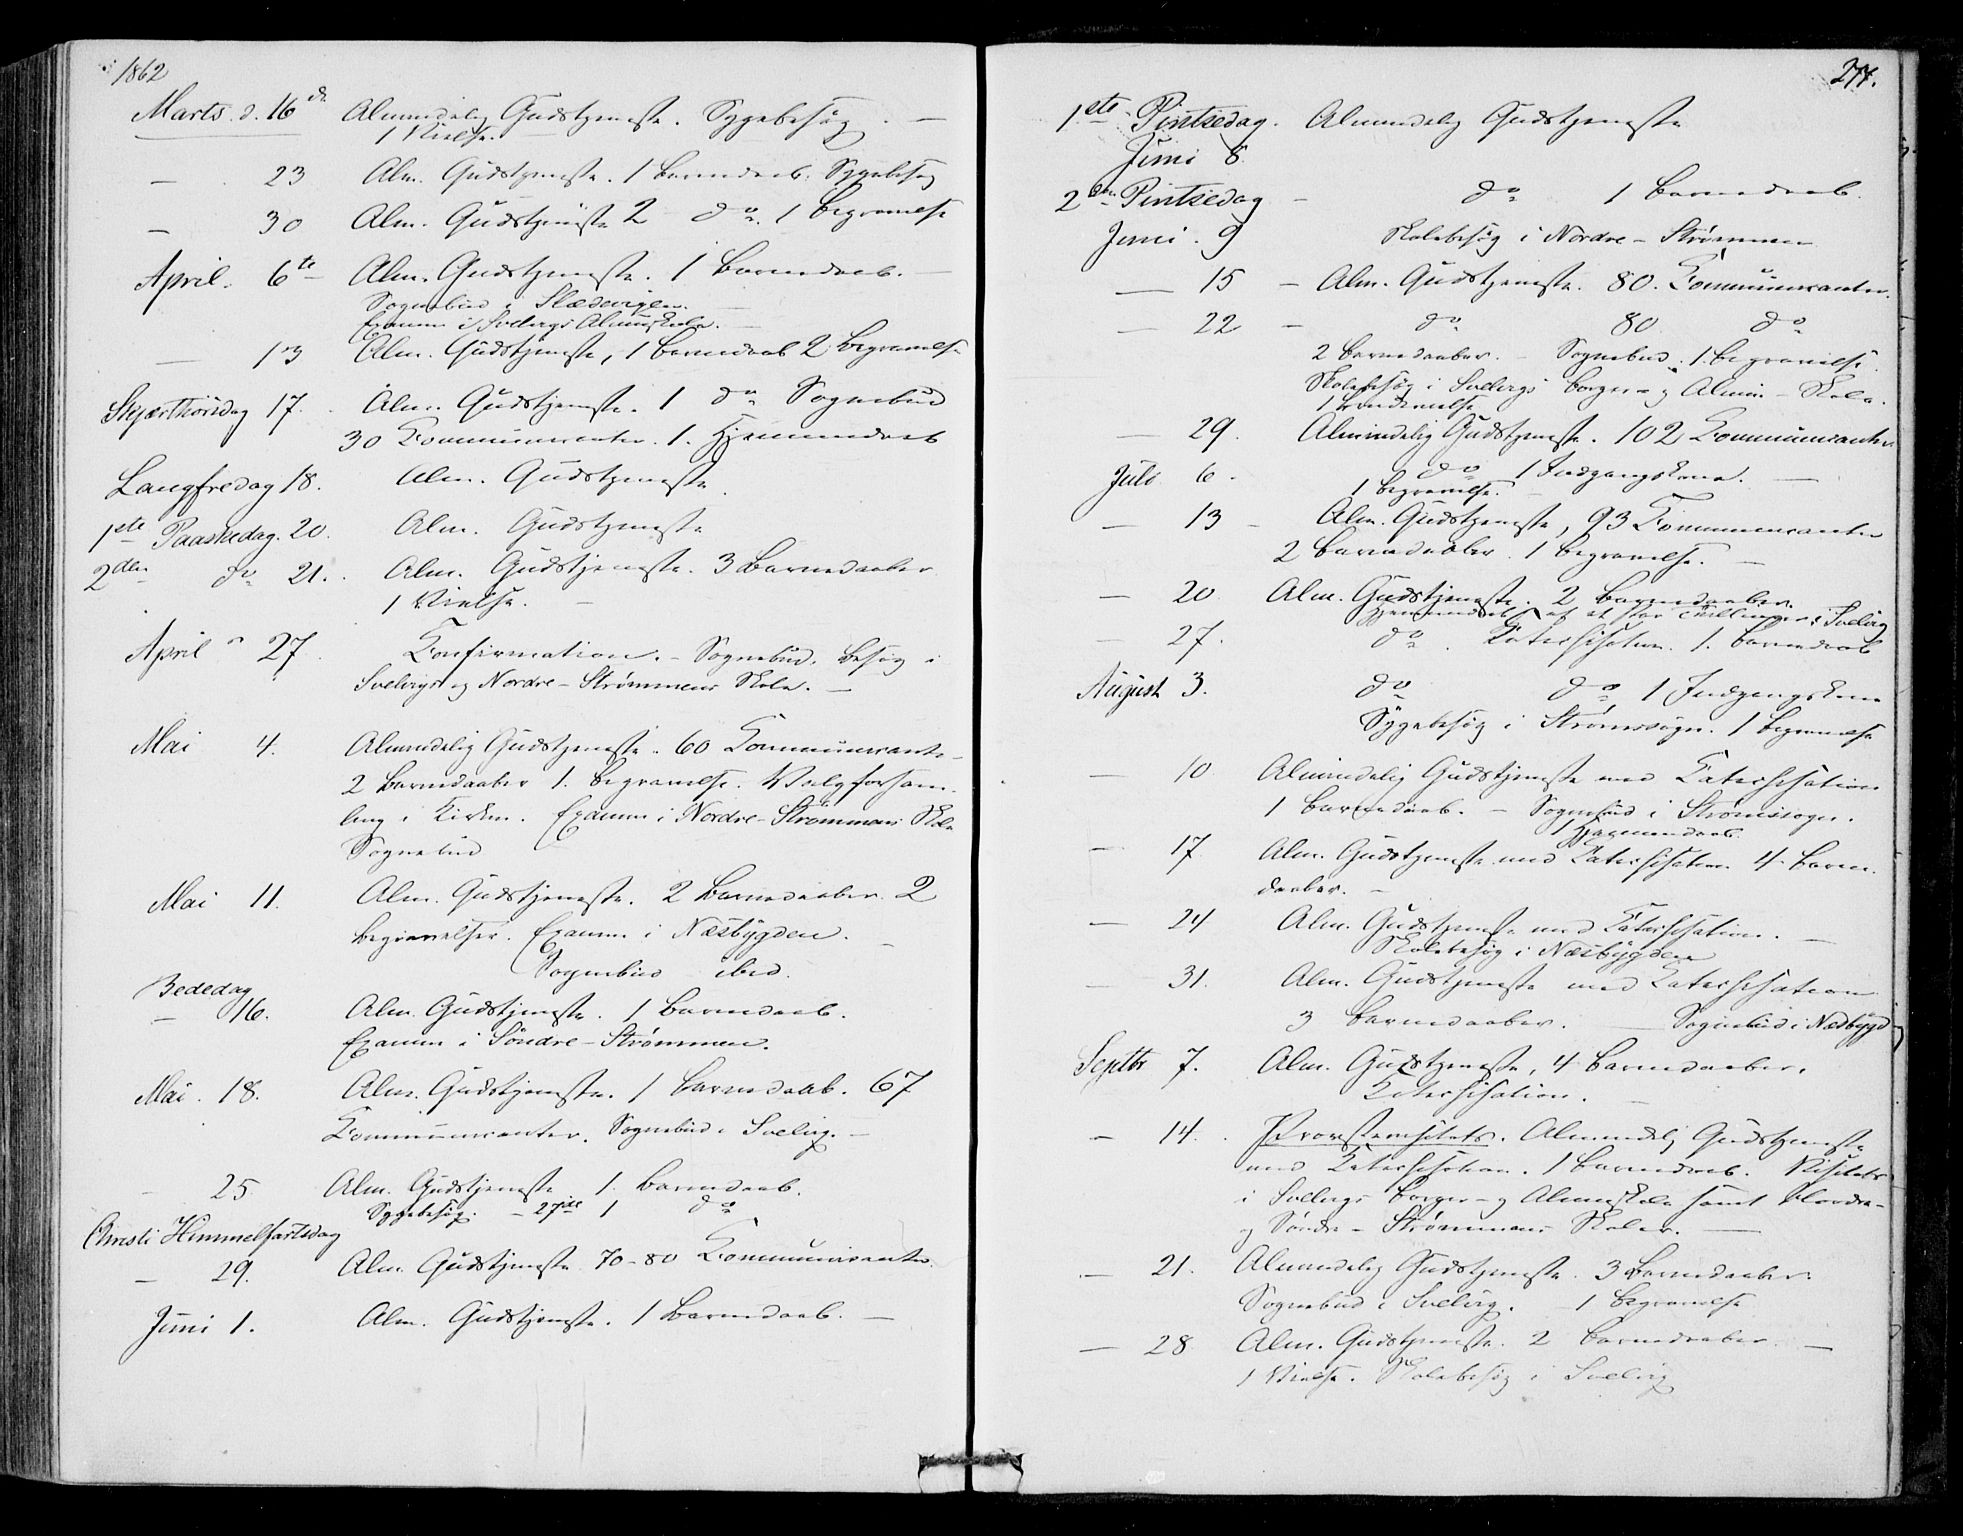 1862
Marts. d. 16de Almindelig Gudstjeneste. Sygebesøg. —
1 Vielse.
— 23 Alm. Gudstjeneste. 1 Barnedaab. Sygebesøg
— 30 Alm. Gudstjeneste 2 do. 1 Begravelse
April. 6te Alm. Gudstjeneste. 1 Barnedaab. —
Sognebud i
Examen i Svelvigs Almueskole. —
— 13 Alm. Gudstjeneste, 1 Barnedaab 2 Begravelse
Skjærthorsdag 17. Alm. Gudstjeneste. 1 do Sognebud
30 Communicanter. 1. Hjemmedaab
Langfredag 18. Alm. Gudstjeneste
1ste Paaskedag. 20. Alm. Gudstjeneste
2den do 21. Alm. Gudstjeneste. 3 Barnedaaber
1 Vielse. —
April 27. Confirmation. – Sognebud. Besøg i
Svelvigs og Nordre-Strømmens Skole. —
Mai 4. Almindelig Gudstjeneste. 60 Communicante-
2 Barnedaaber 1. Begravelse. Valgforsam-
ling i Kirken. Examen i Nordre-Strømmens Skole
Sognebud
Mai 11. Alm. Gudstjeneste. 2 Barnedaaber. 2
Begravelser. Examen i Næsbygden. —
Sognebud ibid.
Bededag
— 16. Alm. Gudstjeneste. 1 Barnedaab.
Examen i Söndre-Strømmen.
Mai. 18. Alm. Gudstjeneste. 1 Barnedaab. 67
Communicanter. Sognebud i Svelvig. —
25 Alm. Gudstjeneste 1. Barnedaab.
Sygebesøg. – 27de 1 do
Christi Himmelfartsdag
— 29. Alm. Gudstjeneste 70-80 Communicanter.
Juni 1. Alm. Gudstjeneste. 1 Barnedaab. —
277.
1ste Pintsedag. Almindelig Gudstjeneste
Juni 8.
2den Pintsedag — do 1 Barnedaab.
Juni. 9 Skolebesøg i Nordre-Strømmen
— 15 — Alm. Gudstjeneste. 80. Communicanter.
— 22 — do 80 do
2 Barnedaaber. – Sognebud. 1. Begravelse.
Skolebesøg i Svelvigs Borger- og Almue-Skole.
1
— 29. Almindelig Gudstjeneste. 102 Communicanter
Juli 6. do 1 Indgangskone. —
1 Begravelse.
— 13 — Alm. Gudstjeneste, 93 Communicanter
2 Barnedaaber. 1 Begravelse. —
— 20 Alm. Gudstjeneste. 2 Barnedaaber.
Hjemmedaab af et Par Tvillinger i Svelvig
— 27. do. Catechisation. 1. Barnedaab
August 3. do do 1 Indgangskone
Sygebesøg i Strømssogn. 1 Begravelse
— 10 Almindelig Gudstjeneste med Catechisation
1 Barnedaab. – Sognebud i Strømssogn.
1 Hjemmedaab.
— 17. Alm. Gudstjeneste med Catechisation 4 Barne-
daaber. –
— 24 Alm. Gudstjeneste med Catechisation. —
Skolebesøg i Næsbygden
— 31. Alm. Gudstjeneste med Catechisation
3 Barnedaaber. — Sognebud i Næsbygd
Septbr 7. Alm. Gudstjeneste, 4 Barnedaaber.
Catechisation. —
— 14. Provstevisitats. Almindelig Gudstjeneste
med Catechisation. 1 Barnedaab. Visitats
i Svelvigs Borger- og Almueskole samt Nordre-
og Söndre-Strömmens Skoler. —
— 21. Almindelig Gudstjeneste. 3 Barnedaaber.
Sognebud i Svelvig. – 1 Begravelse
— 28 Alm. Gudstjeneste. 2 Barnedaaber. —
1 Vielse. Skolebesøg i Svelvig